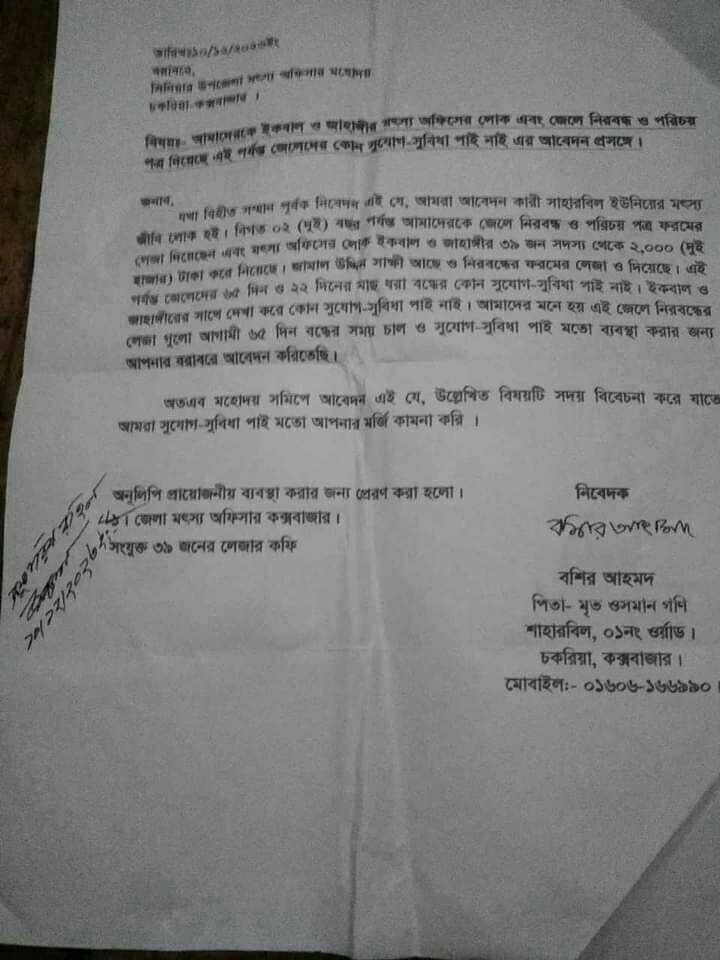 বরাবরে,
সিনিয়র উপজেলা মৎস্য অফিসার মহোদয়
চকরিয়া-কক্সবাজার ।
বিষয়ঃ- আমাদেরকে ইকবাল ও জাহাঙ্গীর মৎস্য অফিসের লোক এবং জেলে নিরবন্ধ ও পরিচয়
পত্র দিয়েছে এই পর্যন্ত জেলেদের কোন সুযোগ-সুবিধা পাই নাই এর আবেদন প্রসঙ্গে ।
জনাব,
যথা বিহীত সম্মান পূর্বক নিবেদন এই যে, আমরা আবেদন কারী সাহারবিল ইউনিয়ের মৎস্য
জীবি লোক হই । বিগত ০২ (দুই) বছর পর্যন্ত আমাদেরকে জেলে নিরবন্ধ ও পরিচয় পত্র ফরমের
লেজা দিয়েছেন এবং মৎস্য অফিসের লোক ইকবাল ও জাহাঙ্গীর ৩৯ জন সদস্য থেকে ২,০০০ (দুই
হাজার) টাকা করে নিয়েছে । জামাল উদ্দিন সাক্ষী আছে ও নিরবন্ধের ফরমের লেজা ও দিয়েছে । এই
পর্যন্ত জেলেদের ৬৫ দিন ও ২২ দিনের মাছ ধরা বন্ধের কোন সুযোগ-সুবিধা পাই নাই । ইকবাল ও
জাহাঙ্গীরের সাথে দেখা করে কোন সুযোগ-সুবিধা পাই নাই । আমাদের মনে হয় এই জেলে নিরবন্ধের
লেজা গুলো আগামী ৬৫ দিন বন্ধের সময় চাল ও সুযোগ-সুবিধা পাই মতো ব্যবস্থা করার জন্য
আপনার বরাবরে আবেদন করিতেছি ।
অতএব মহোদয় সমিপে আবেদন এই যে, উল্লেখিত বিষয়টি সদয় বিবেচনা করে যাতে
আমরা সুযোগ-সুবিধা পাই মতো আপনার মর্জি কামনা করি ।
অনুলিপি প্রায়োজনীয় ব্যবস্থা করার জন্য প্রেরণ করা হলো ।
১। জেলা মৎস্য অফিসার কক্সবাজার ।
সংযুক্ত ৩৯ জনের লেজার কফি
নিবেদক
বশির আহমদ
পিতা- মৃত ওসমান গণি
শাহারবিল, ০১নং ওর্য়াড ।
চকরিয়া, কক্সবাজার ।
মোবাইলঃ- ০১৬০৬-১৬৬৯৯০ ।